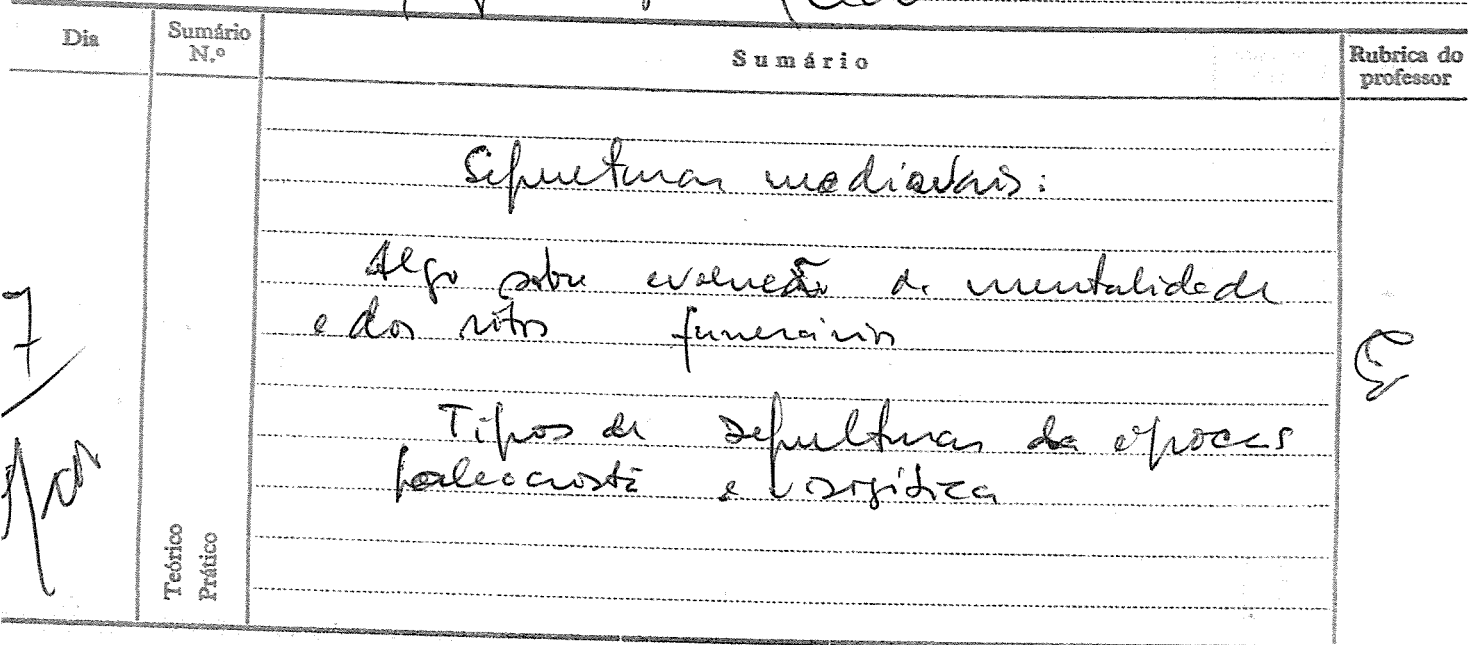 Dia
Sumário
N.º
Sumário
Rubrica do
professor
Sepulturas medievais:
Algo sobre evolução da mentalidade
e dos ritos funerários
7
Tipos de sepulturas da épocas
paleocristã e visigótica
Teórico
Prático